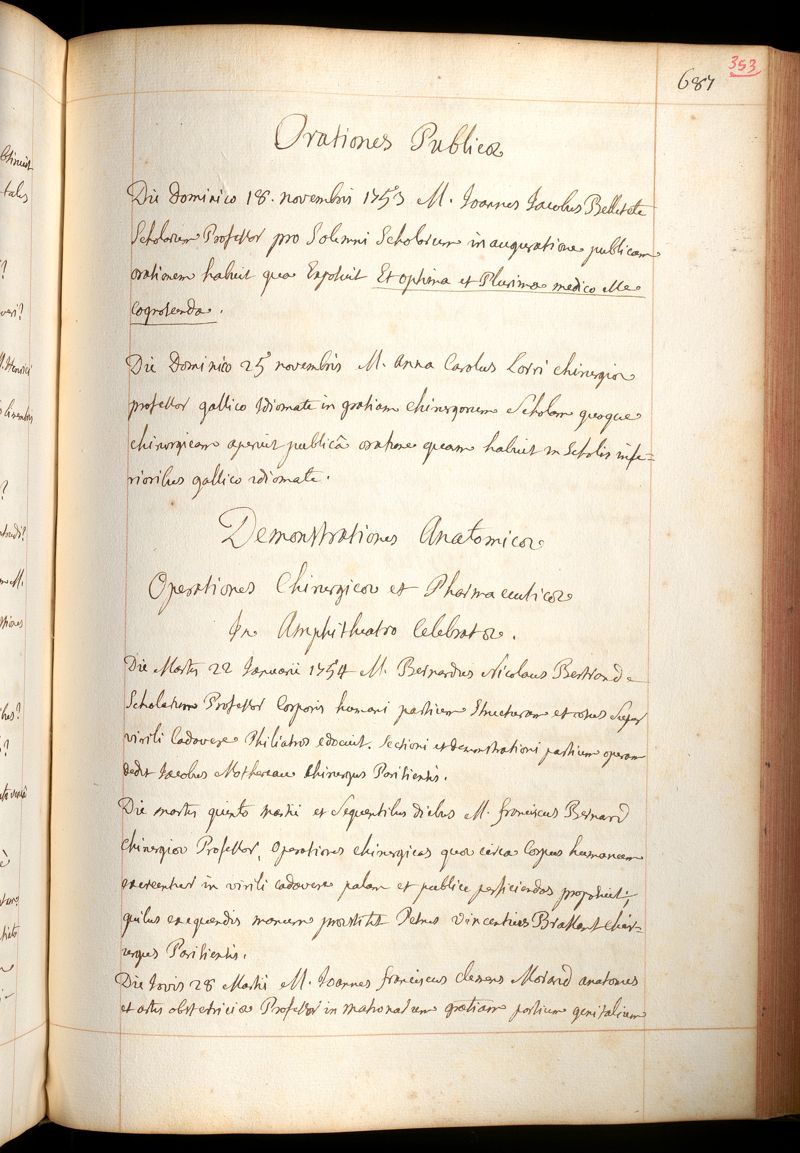 353
687
Orationes Publicæ
Die Dominico 18. novembris 1753 M. Joannes Jacobus Belleteste
Scholarum Professor pro Solemni Scholarum inauguratione publicam
orationem habuit qua Exposuit Et optima et Plurima medico esse
cognoscenda.
Die Dominico 25 novembris M. Anna Carolus Lorri chirurgiæ
professor gallico idiomate in gratiam chirurgorum Scholam quoque
chirurgicam aperuit publicâ oratione quam habuit in Scholis infe=
rioribus gallico idiomate.
Demonstrationes Anatomicæ
Operationes Chirurgicæ et Pharmaceuticæ
In Amphitheatro Celebratæ.
Die Martis 22 Januarii 1754 M. Bernardus Nicolaus Bertrand
Scholarum Professor Corporis humani partium Structuram et usus Super
virili Cadavere Philiatros edocuit. Sectioni et demonstrationi partium operam
dedit Jacobus Mothereau Chirurgus Parisiensis.
Die martis quinto martii et Sequentibus diebus M. franciscus Bernard
Chirurgiæ Professor, Operationes chirurgicas quæ circa Corpus humanum
exercentur in virili cadavere palam et publice perficiendas proposuit;
quibus exequendis manum præstitit Petrus Vincentius Brallant chir=
urgus Parisiensis.
Die Jovis 28 Martii M. Joannes franciscus Clemens Morand anatomes
et artis obstetriciæ Professor in matronarum gratiam partium genitalium